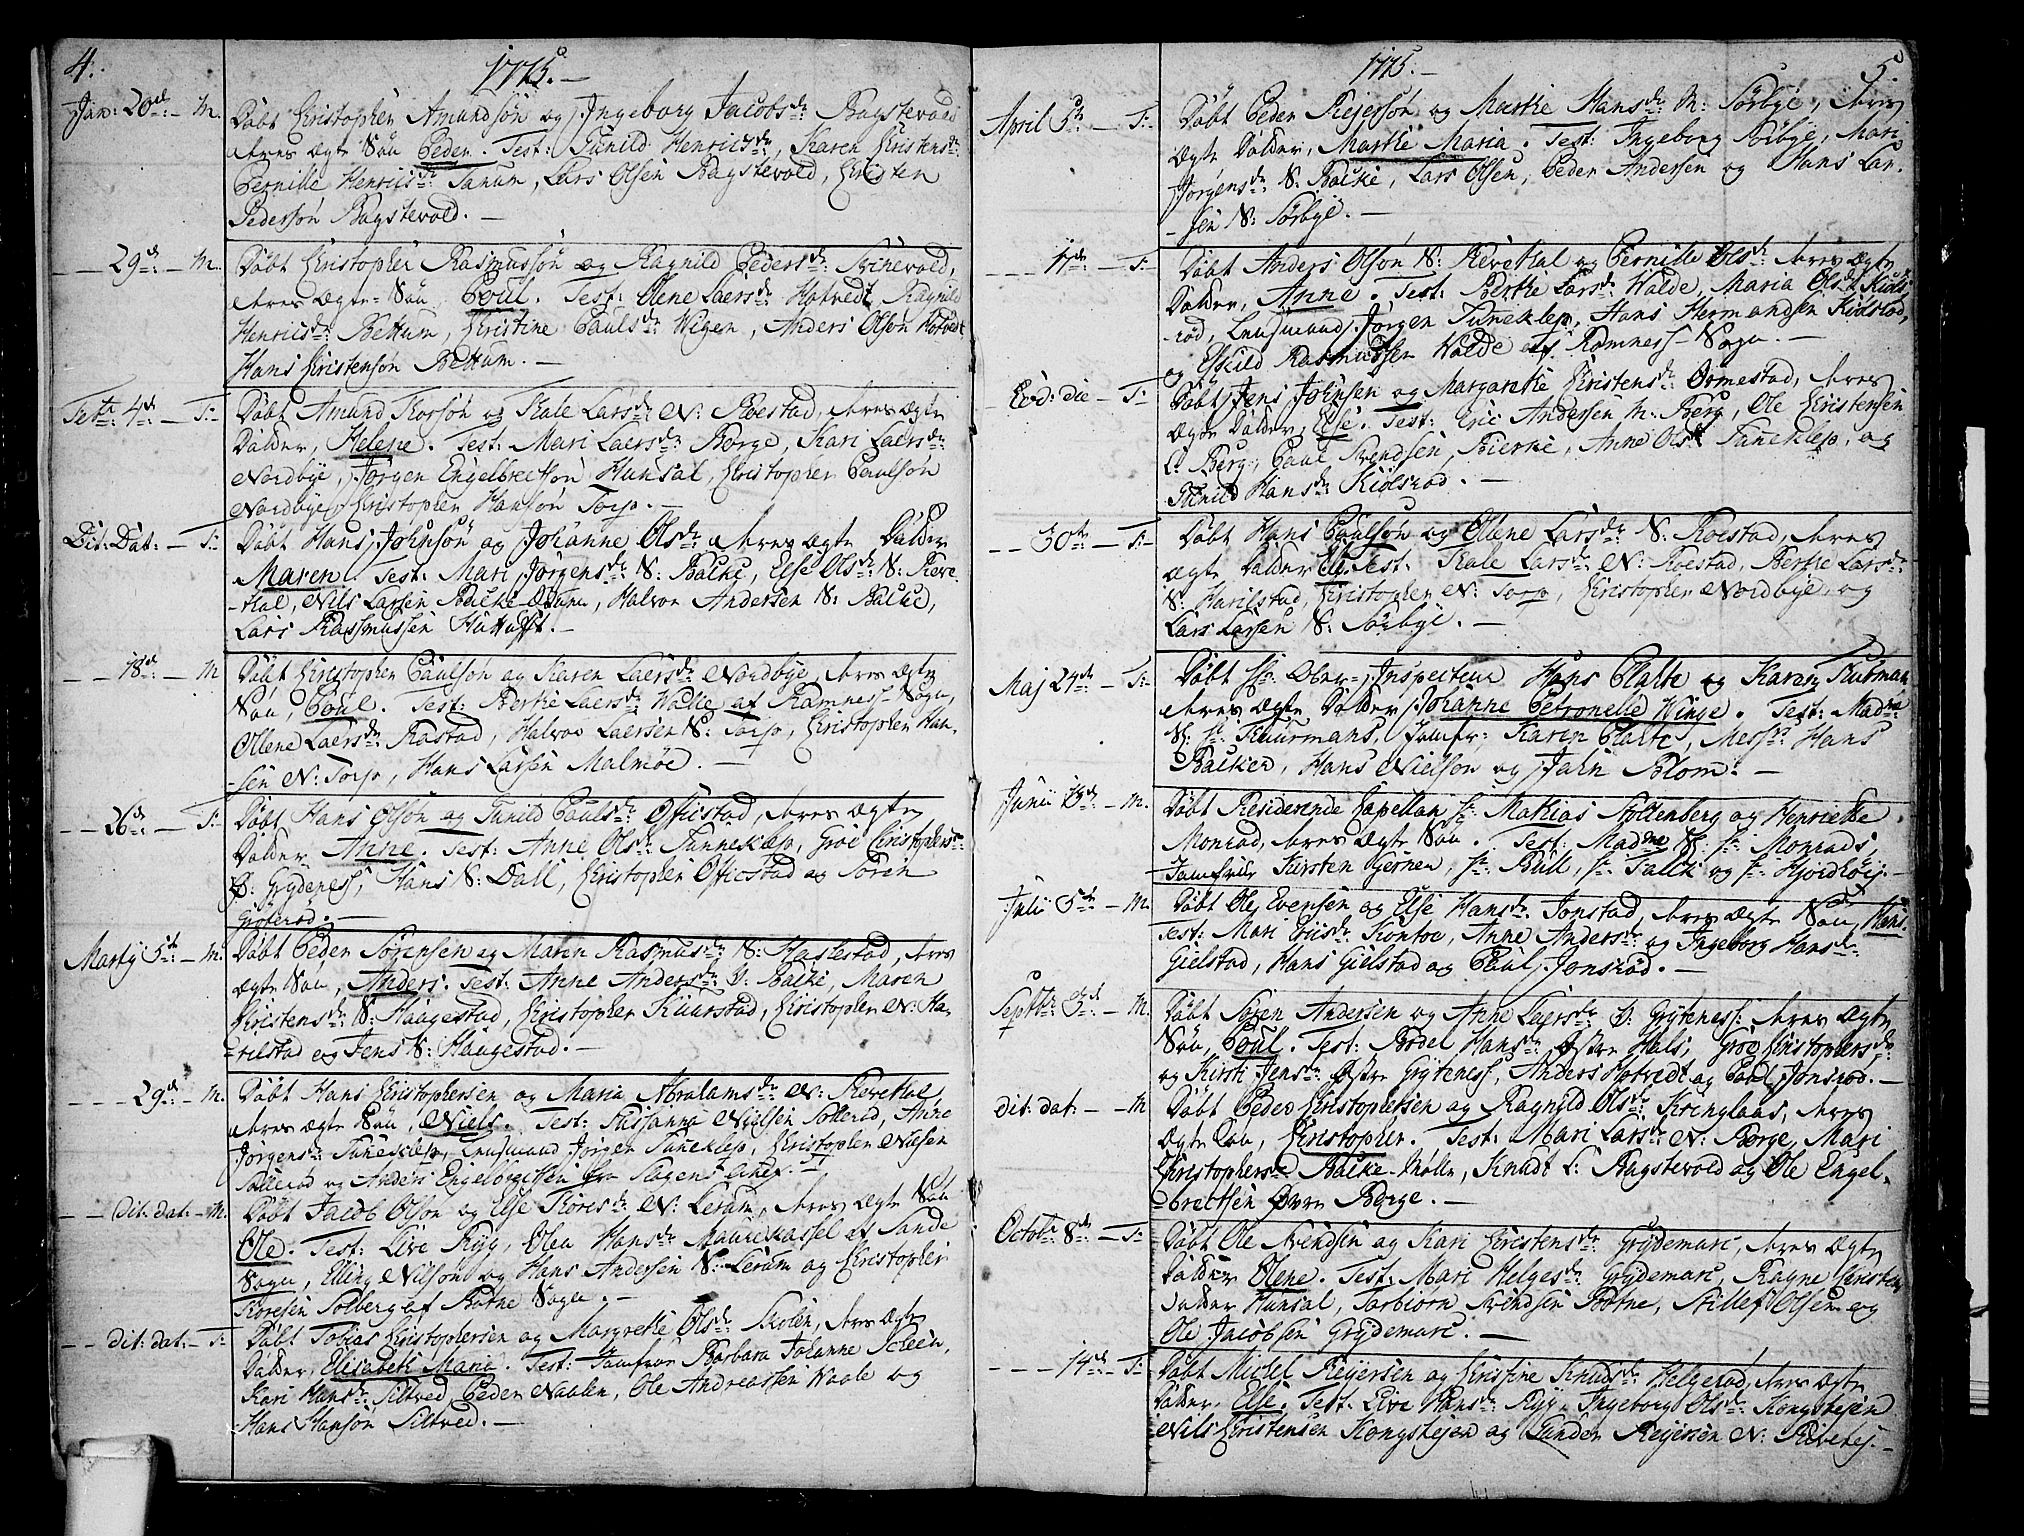 4.
1775. —
Jan: 20de: — M. Döbt Christopher Amundsön og Ingeborg Jacobsdr: Bagstevold
deres Ægte Sön Peder. Test: Gunild Henricsdr:, Karen Christensdr:
Pernille Henricsdr: Tanum, Lars Olsen Bagstevold, Christen
Pedersön Bagstevold. —
— — 29de: — M. Döbt Christopher Rasmussön og Ragnild Pedersdr: Svinevold,
deres Ægte Sön, Poul. Test: Olene Laersdr: Hotvedt, Ragnild
Henricsdr: Bettum, Christine Paulsdr: Wigen, Anders Olsön Hotvedt
Hans Christensön Bettum. —
Febr: 4de: — T: Döbt Amund Korsön og Kale Larsdr: N: Roestad, deres Ægte
Daatter, Helene. Test: Mari Laersdr: Borge, Kari Laersdr:
Nordbye, Jörgen Engelbretsön Hunsal, Christopher Paulsön
Nordbye, Christopher Hansön Torp. —
Dit: Dat: — T: Döbt Hans Johnsön og Johanne Olsdr: deres Ægte Datter
Maren. Test: Mari Jörgensdr: N: Backe, Else Olsdr: N: Reve-
-tal, Nils Larsen Backe-, Halvor Andersen N: Backe,
Lars Rasmussen Huttufft. —
— — 18de: — M Döbt Christopher Paulsön og Karen Laersdr: Nordbye, deres Ægte
Sön, Poul. Test: Berthe Laersdr: Walke af Ramness-Sogn,
Ollene Laersdr: Rastad, Halvor Laersen N: Torp, Christopher Han-
-sen N: Torp, Hans Larsen Malmöe. —
— — 26de: — T: Döbt Hans Olsön og Gunild Paulsdr: Efftestad, deres Ægte
Datter Anne. Test: Anne Olsdr: Tunneklep, Groe Christophersdr:
Ö: Grydeness, Hans N: Dall, Christopher Efftestad og Sören
Gröterød. —
Martij 5te — M. Döbt Peder Sörensen og Maren Rasmusdr: N: Haslestad, deres
Ægte Sön, Anders. Test: Anne Andersdr: Ö: Backe, Maren
Christensdr: N: Haagestad, Christopher Kuurstad, Christopher N: Ha-
-relstad og Jens N: Haagestad. —
— — — 29de: — M. Döbt Hans Christophersen og Maria Abrahamsdr: N: Revetal,
deres Ægte Sön, Niels. Test: Susanna Nielsen Sollerud, Anne
Jörgensdr: Tuneklep, Lensmand Jörgen Tuneklep, Christopher Nielsen
Sollerud og Anders Engelbretsen fra Slagens
— — Dit: dat: — M. Döbt Jacob Olsön og Else Koresdr: N: Lerum, deres Ægte Sön
Ole. Test: Live Ryg, Olea Hansdr: Maurekassel af Sande
Sogn, Elling Nilsön og Hans Andersen N: Lerum og Christopher
Koresen Solberg af Botne Sogn. —
— — dit: dat: — T: Döbt Tobias Christophersen og Margrethe Olsdr: Skolen, deres Ægte
Datter, Elisabeth Maria. Test: Jomfrue Barbara Johanne Scheen,
Kari Hansdr: Siltved, Peder Naalen, Ole Andreassen Naale og
Hans Hansön Siltved. —
1775. —
5.
April 5te — T: Döbt Peder Reyersön og Marthe Hansdr: M: Sörbye, deres
Ægte Datter, Marthe Maria. Test: Ingeborg Sörbye, Mari
Jörgensdr: N: Backe, Lars Olsen, Peder Andersen og Hans Lar-
-sen N: Sörbye. —
— — — 17de — T: Döbt Anders Olsön N: Revetal og Pernille Olsdr: deres Ægte
Datter, Anne. Test: Berthe Larsdr: Walde, Maria Olsdr:
-röd, Lensmand Jörgen Tuneklep, Hans Hermandsen Kiölsröd,
og Eskild Rasmussen Walde af Ramness-Sogn. —
Eod: die — T: Döbt Jens Johnsen og Margarethe Christensdr: Ormestad, deres
Ægte Datter, Else. Test: Eric Andersen M: Berg, Ole Christensen
L: Berg, Paul Svendsen, Bierke, Anne Olsdr: Tuneklep, og
Gunild Hansdr: Kiölsröd. —
— — 30te: — T: Döbt Hans Paulsön og Ellene Larsdr: N: Roestad, deres
Ægte Datter Test: Kale Larsdr: N: Roestad, Berthe Larsdr:
N: Harilstad, Christopher N: Torp, Christopher Nordbye, og
Lars Larsen N: Sörbye. —
Maj 24de: — T: Döbt Hr: Ober-Inspecteur Hans Platte og Karen Fuurman
deres Ægte Datter Johanne Petronelle Winge. Test: Madme
N: Sr: Fuurmans, Jomfr: Karen Platte, Messrs Hans
Backer, Hans Nielsön og Jahn Blom. —
Junii 13de: — M. Döbt Residerende Capellan Hr: Mathias Stoltenberg og Henriethe
Monrad, deres Ægte Sön. Test: Madme N: Hr: Monrads,
Jomfrue Kirsten Gjerner, Hr: Bull, Hr: Falck og Hr: Hjordhöy. —
Julii 5te: — M. Döbt Ole Evensen og Else Hansdr: Jonstad, deres Ægte Sön, Hans.
Test: Mari Erisdr: Kontoe, Anne Andersdr: og Ingeborg Hansdr:
Gielstad, Hans Gielstad og Paul Jonsröd. —
Septbr: 3de: — M. Döbt Sören Andersen og Anne Laersdr: Ö: Gryteness: deres Ægte
Sön, Poul. Test: Bodel Hansdr: Östre Hals, Groe Christophersdr:
og Kirsti Jensdr: Östre Gryteness, Anders Hotvedt og Paul Jonsrod. —
Dit: dat: — — M Döbt Peder Christophersen og Ragnild Olsdr: Kringlaas, deres
Ægte Sön, Christopher. Test: Mari Larsdr: N: Borge, Mari
Christophersdr: Backe-Mölle, Knudt L: Bagstevold og Ole Engel-
-bretsen Övre Borge. —
Octobr: 8de: — T: Döbt Ole Svendsen og Kari Christensdr: Grydemarc, deres Ægte
Datter Olene. Test: Mari Helgesdr: Grydemarc, Ragne Christens
Datter Hunsal, Torbiörn Svendsen Botne, Stillef Olsen og
Ole Jacobsen Grydemarc. —
— — — 14de: — T: Döbt Michel Reyersen og Christine Knudsdr: Helgerod, deres Ægte
Datter, Else. Test: Live Hansdr: Ryg, Ingeborg Olsdr: Kongstejen
Nils Christensen Kongstejen og Gunder Reyersen N: —